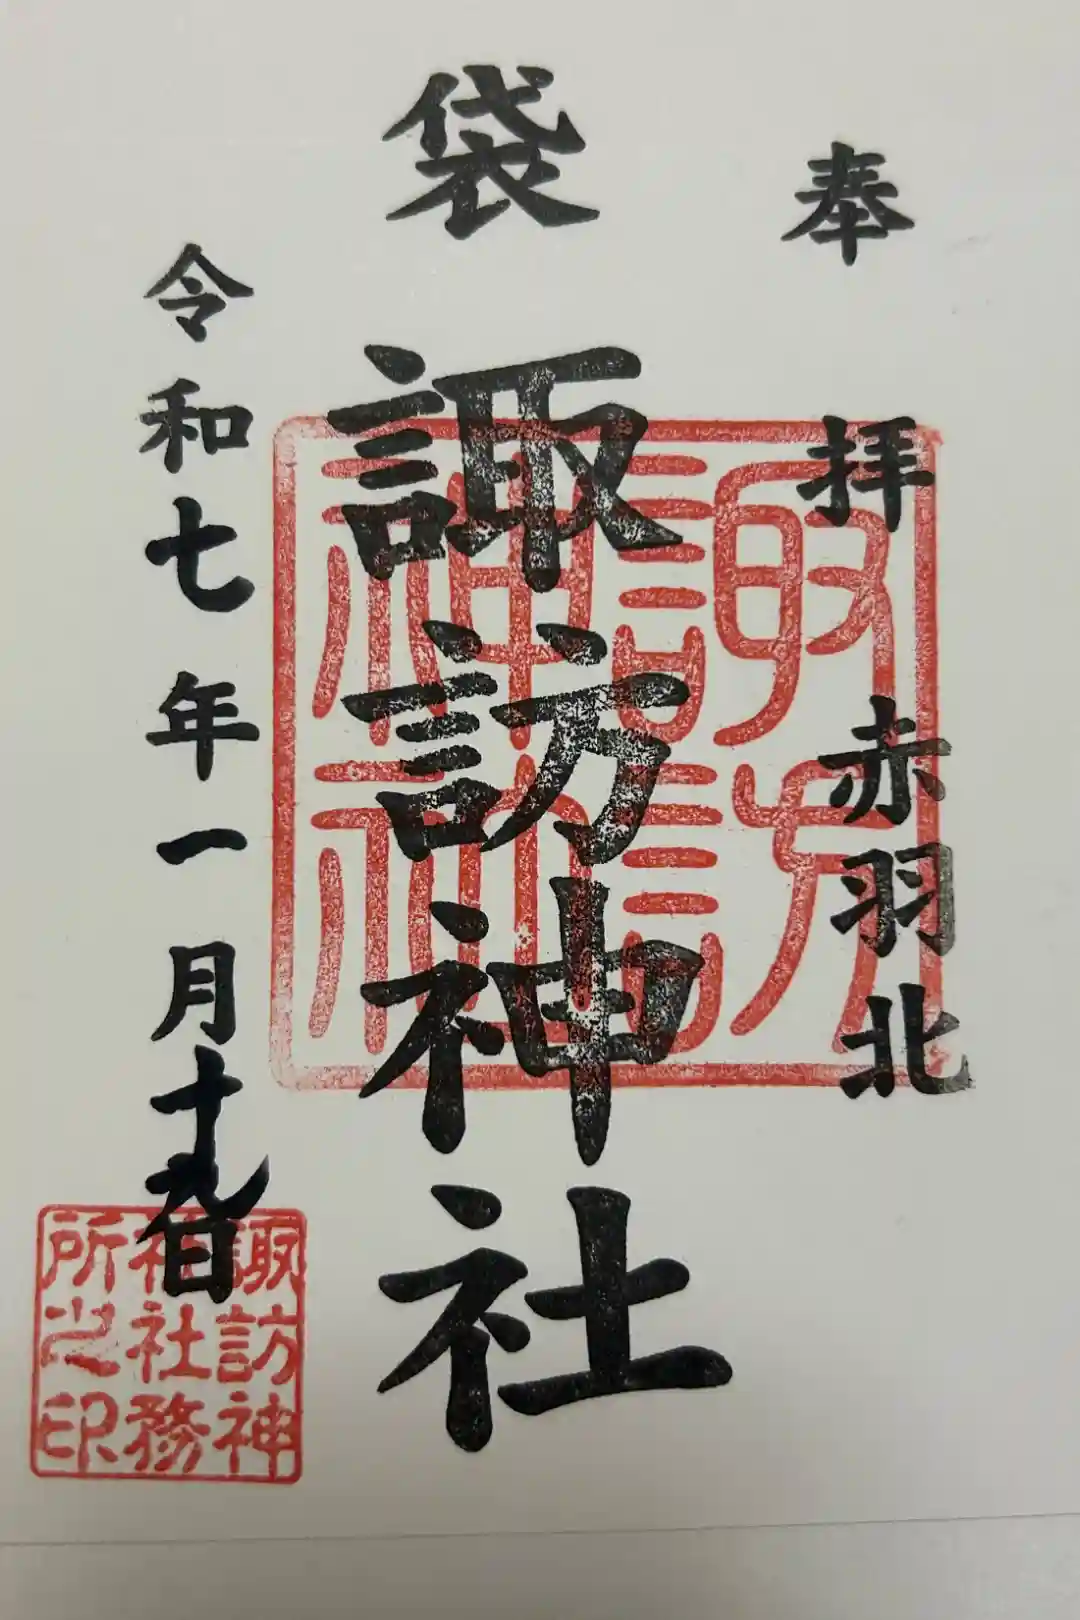 奉拝 赤羽北
袋 諏訪神社
令和七年一月十九日
諏訪神社
諏訪神
社社務
所之印